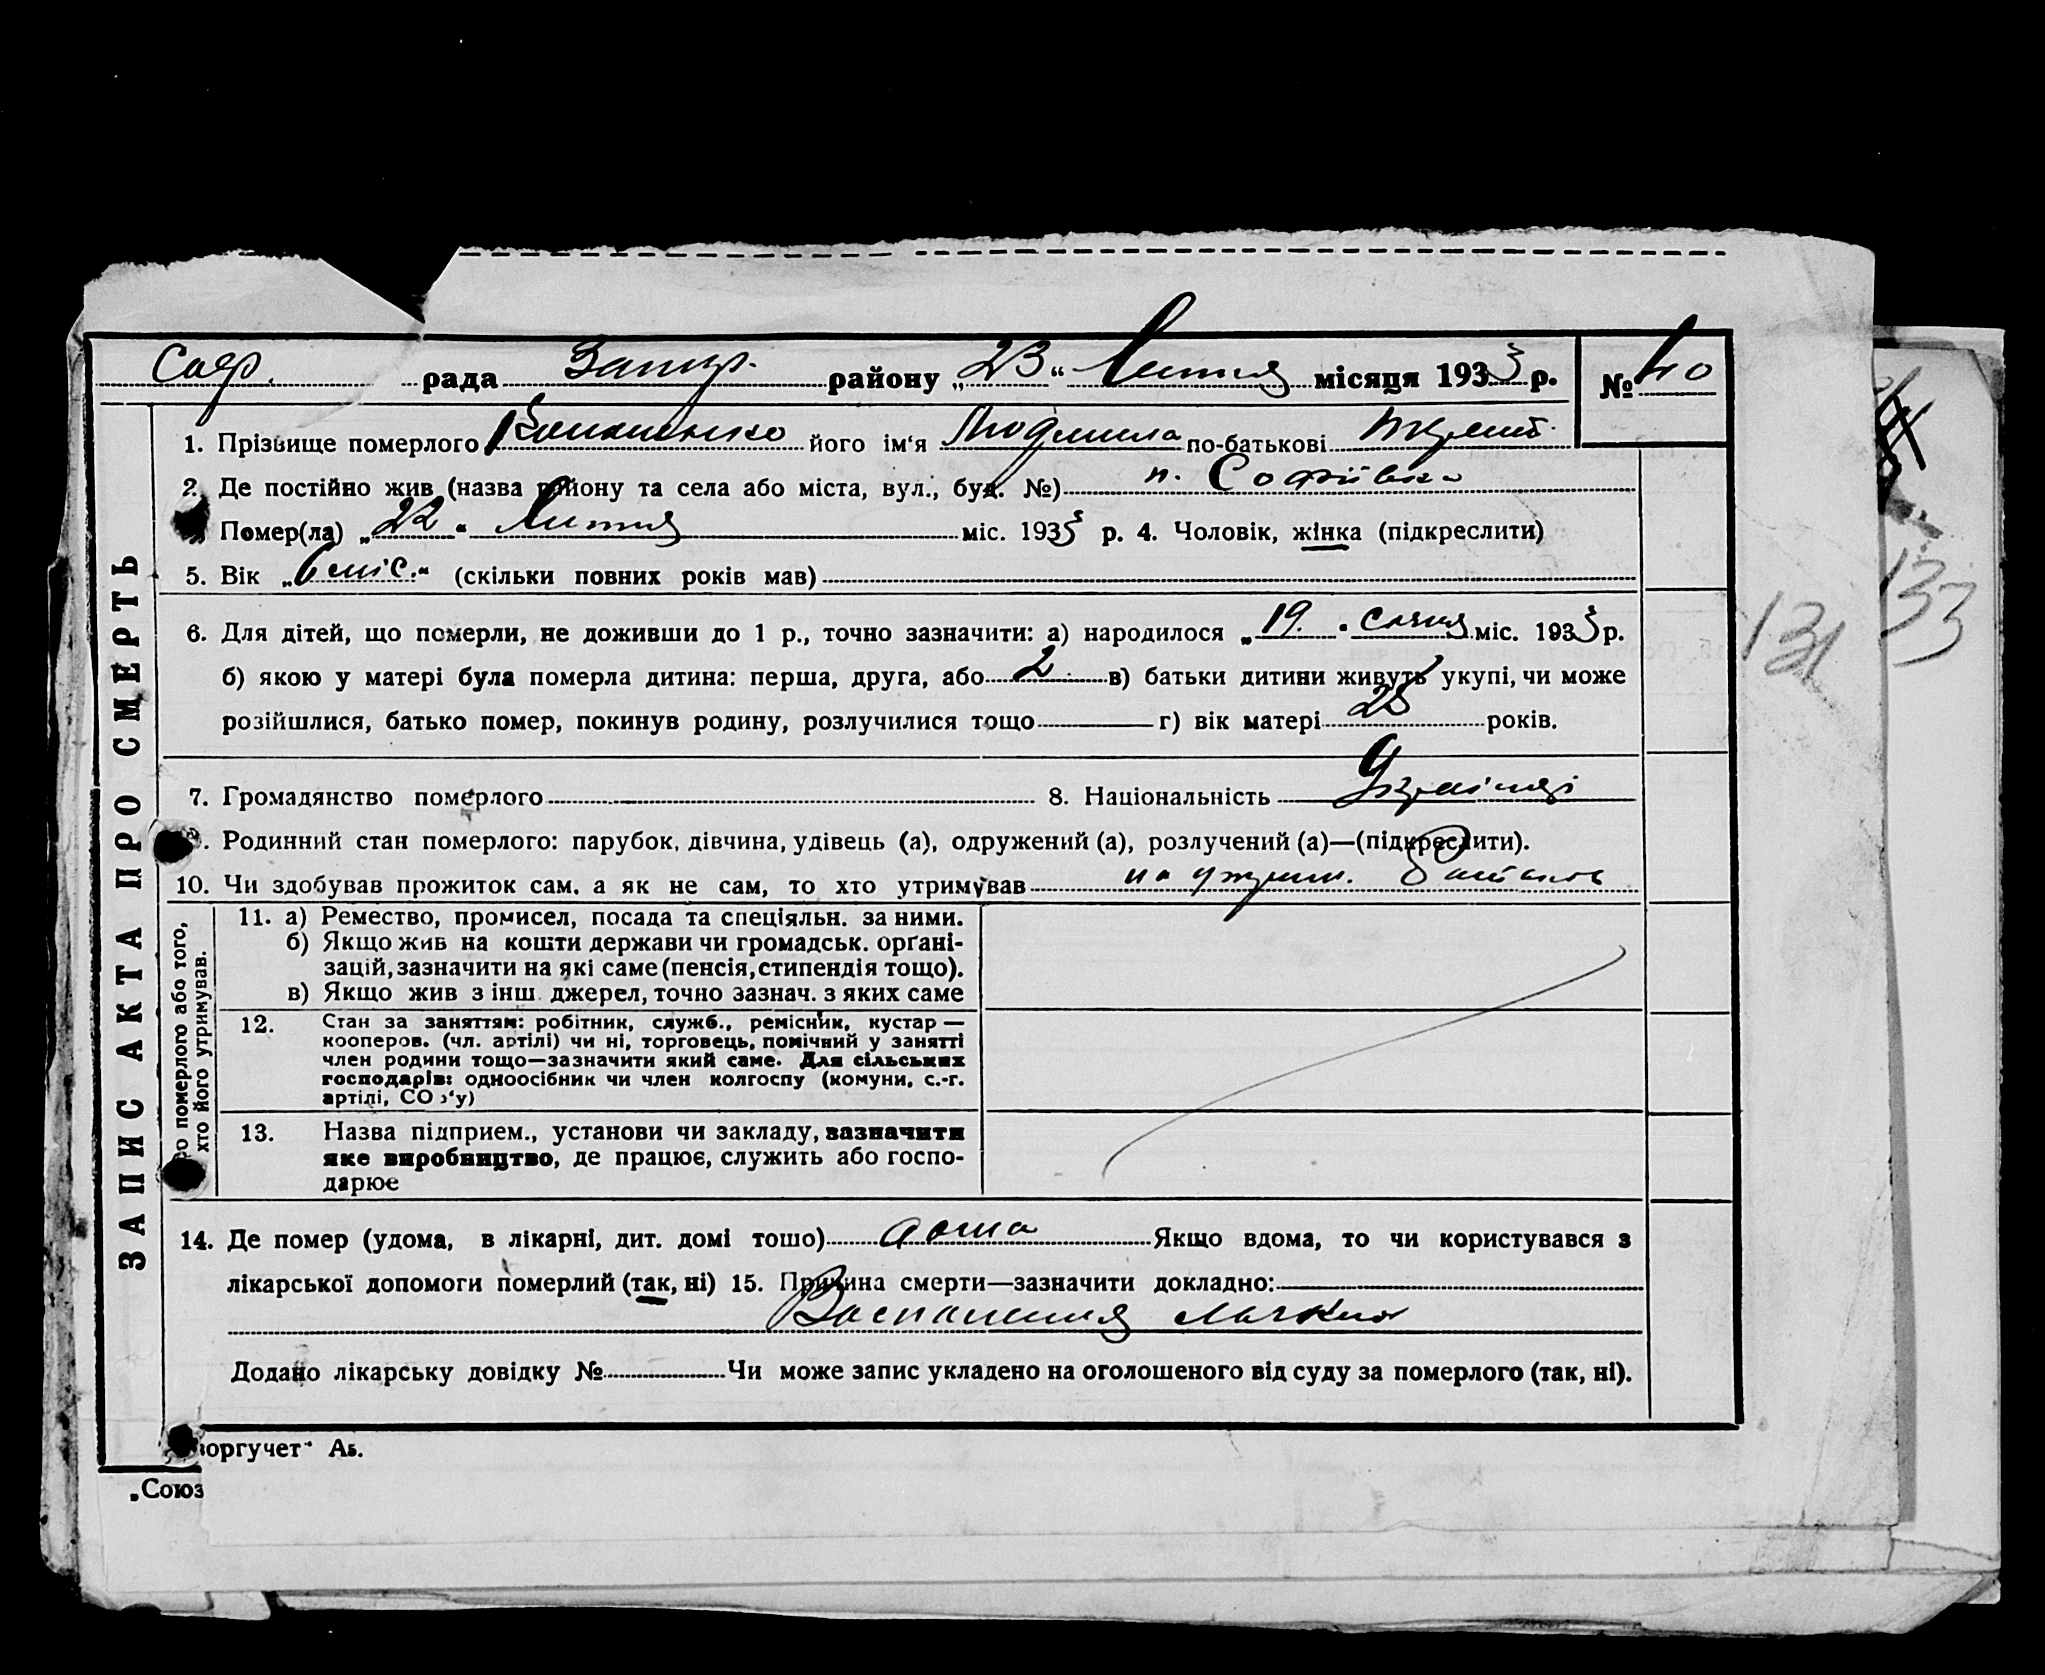 рада Запор. району „23“ Лютня місяця 1933 р. № 40
1. Прізвище померлого його ім'я Людмила по-батькові
2. Де постійно жив (назва району та села або міста, вул., буд. №) п. Софіївка
Помер(ла) „22“ Лютня міс. 1933 р. 4. Чоловік, жінка (підкреслити)
5. Вік „ міс.“ (скільки повних років мав)
6. Для дітей, що померли, не доживши до 1 р., точно зазначити: а) народилося „19.“ сочня міс. 1933 р.
б) якою у матері була померла дитина: перша, друга, або 2 в) батьки дитини живуть укупі, чи може
розійшлися, батько помер, покинув родину, розлучилися тощо г) вік матері років.
7. Громадянство померлого 8. Національність
9. Родинний стан померлого: парубок, дівчина, удівець (а), одружений (а), розлучений (а)—(підкреслити).
10. Чи здобував прожиток сам, а як не сам, то хто утримував на утрим.
11. а) Ремество, промисел, посада та спеціяльн. за ними.
б) Якщо жив на кошти держави чи громадськ. орґані-
зацій, зазначити на які саме (пенсія, стипендія тощо).
в) Якщо жив з інш. джерел, точно зазнач. з яких саме
12. Стан за заняттям: робітник, служб., ремісник, кустар —
кооперов. (чл. артілі) чи ні, торговець, помічний у занятті
член родини тощо—зазначити який саме. Для сільських
господарів: одноосібник чи член колгоспу (комуни, с.-г.
артілі, СО з'у)
13. Назва підприєм., установи чи закладу, зазначити
яке виробництво, де працює, служить або госпо-
дарює
14. Де помер (удома, в лікарні, дит. домі тошо) дома Якщо вдома, то чи користувався з
лікарської допомоги померлий (так, ні) 15. Причина смерти—зазначити докладно:
Воспаления
Додано лікарську довідку № Чи може запис укладено на оголошеного від суду за померлого (так, ні).
оргучет“ А5.
„Союз
ЗАПИС АКТА ПРО СМЕРТЬ
ро померлого або того,
хто його утримував.
131
133